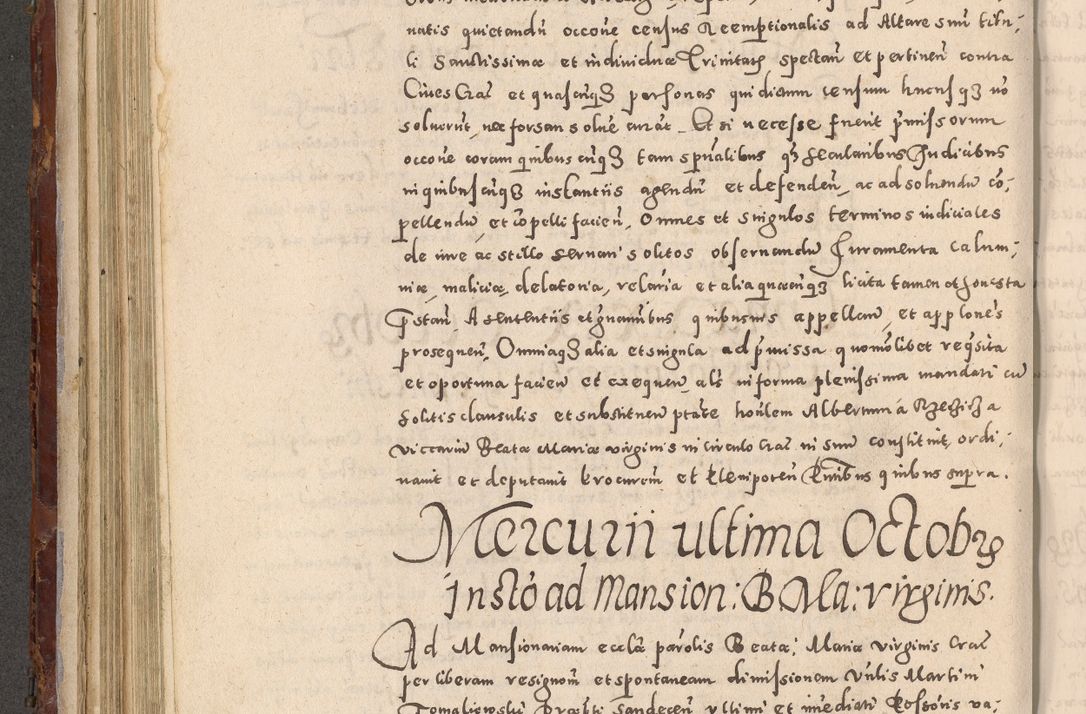 natis quietandũ occoñe census Reemptionalis ad Altare sm̃i titu;
li Sanctissimæ et individuæ Trinitatȝ spectañ et pertineñ contra
Cives Crac̃ et quascũqȝ personas qui dictum censum hucusqȝ nõ
solverũt, nec forsan solve curãt. Et si necesse fuerit p̃missorum
occoñe coram quibuscũqȝ tam spũalibus qȝ secularibus Judicibus
in quibuscũqȝ instantiis agendũ et defendeñ, ac ad solvendũ cõ;
pellendũ, et cõpelli facieñ, Omnes et singulos terminos iudiciales
de iure ac stillo servari solitos observandũ Juramenta calum;
niæ, maliciæ, delatoria, relãria et alia quæcũqȝ licita tamen et honesta
p̃standũ, A sententiis et gravaminibus quibusvis appellandũ, et applones
prosequeñ, Omniaqȝ alia et singula ad p̃missa quomõlibet reqsita
et oportuna facieñ et exequeñ, als in forma plenissima mandati cũ
solitis clausulis et substitueñ ptãte hon̄lem Albertum á Rzeczicza
viccarium Beatæ Mariæ virginis in Circulo Crac̃ in suum constituit, ordi;
navit et deputavit Procurem̃ et Plenipoteñ P̃ntibus quibus supra.
Mercurii ultima Octobrȝ
Instõ ad Mansion: B Ma: virginis.
Ad Mansionariam eccl̃æ parõlis Beatæ; Mariæ virginis Crac̃
per liberam resignom̃ et spontaneam dimissionem Vñlis Martini
Tomaliowski Præsbti Sandeceñ ultimi et im̃ediati Possõris va;